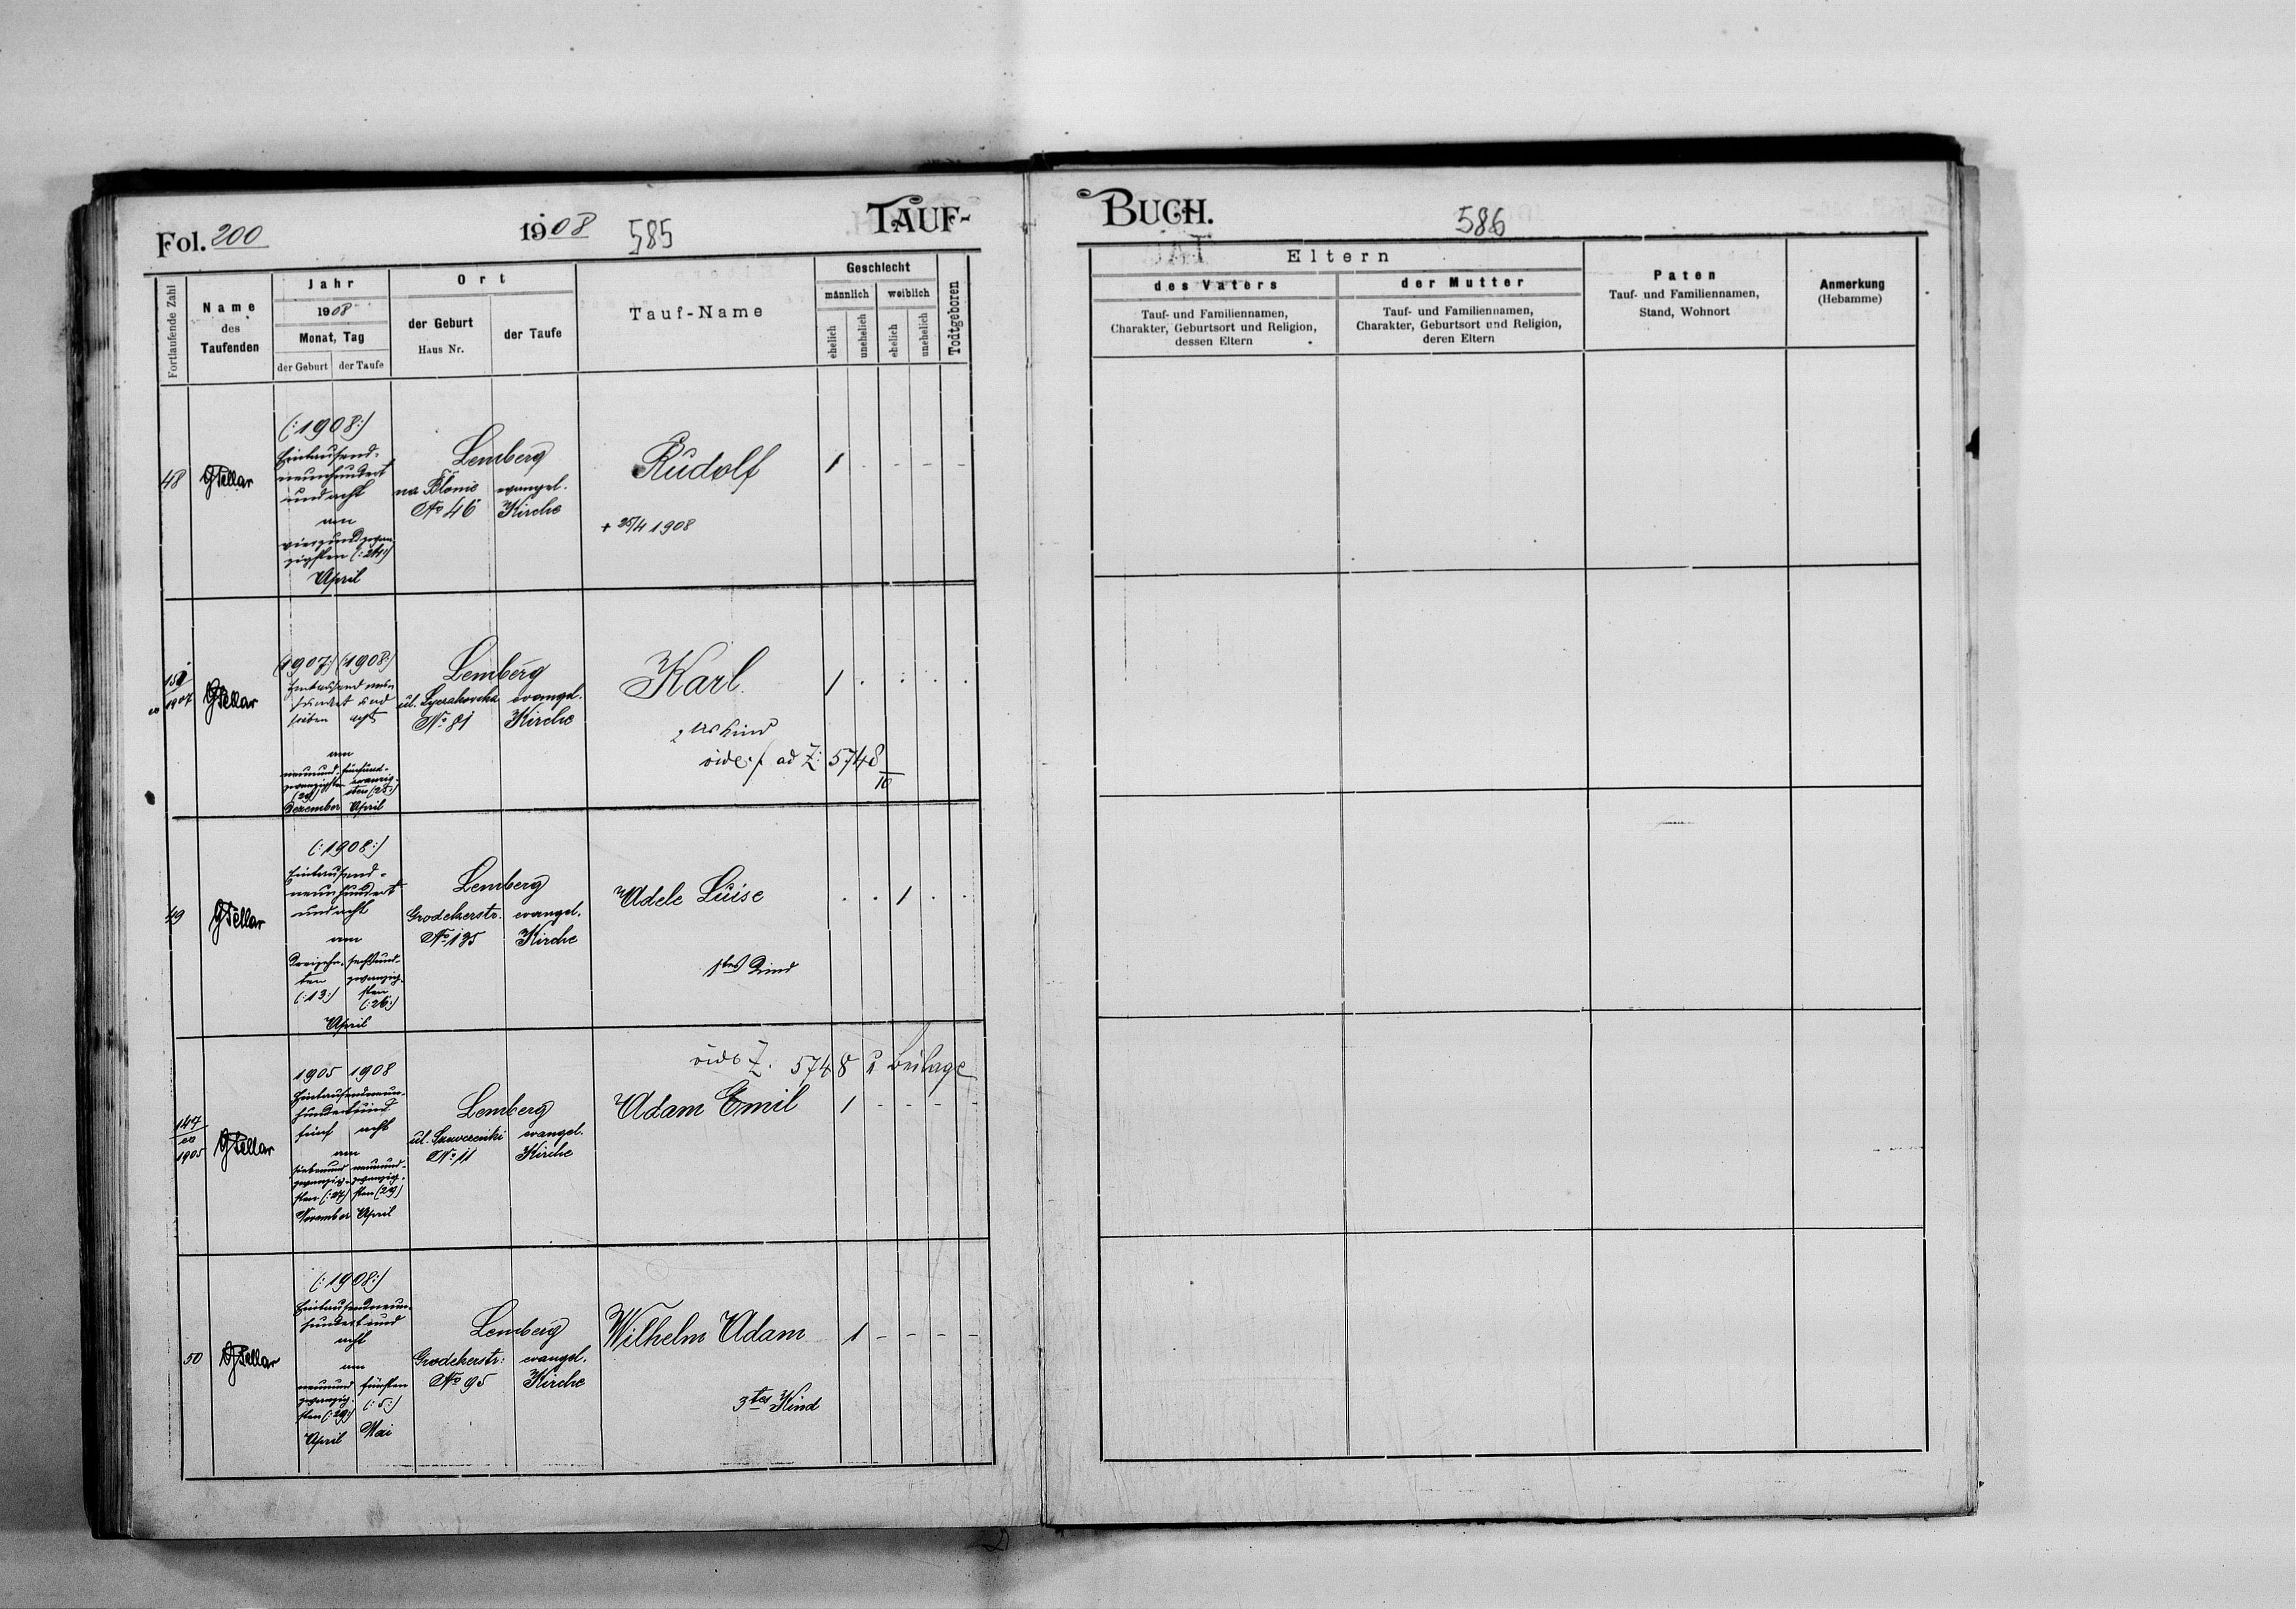 Fol. 200
1908
585
TAUF-
Fortlaufende Zahl
Name
des
Taufenden
Jahr
1908
Monat, Tag
der Geburt
der Taufe
Ort
der Geburt
Haus Nr.
der Taufe
Tauf-Name
Geschlecht
männlich
weiblich
ehelich
unehelich
ehelich
unehelich
Todtgeboren
48
(:1908:)
Eintausend-
neunhundert
und acht
am
vierundzwan
zigsten (:24:)
April
Lemberg
na Błonie
No 46
evangel.
Kirche
Rudolf
+ 25/4 1908
1 - - - -
1907
(1907:) (:1908:)
Eintausend neun
hundert und
sieben acht
am
neunund- fünfund-
zwanzigsten zwanzig-
(29) sten (25:)
Dezember April
Lemberg
ul. Łyczakowska
No 81
evangel.
Kirche
Karl.
1
2tes Kind
vide ad Z: 5748
10
49
(:1908:)
Eintausend-
neunhundert
und acht
am
dreizehn- sechsund-
ten zwanzig-
(:13:) sten
(:26:)
April
Lemberg
Grodekerstr.
No 135
evangel.
Kirche
Adele Luise
1
1tes Kind
vide Z. 5748 Beilage
147
ex
1905
1905 1908
Eintausendneun-
hundert und
fünf acht
am
siebenund neunund-
zwanzig- zwanzig-
sten (:27) sten (29)
November April
Lemberg
No 11
evangel.
Kirche
Adam Emil
1 - - - -
50
(:1908:)
Eintausendneun-
hundert und
acht
am
neunund fünften
zwanzig- (:5:)
sten (:29:)
April Mai
Lemberg
Grodekerstr:
No 95
evangel.
Kirche
Wilhelm Adam
1 - - - -
3tes Kind
BUCH.
586
Eltern
des Vaters
Tauf- und Familiennamen,
Charakter, Geburtsort und Religion,
dessen Eltern
der Mutter
Tauf- und Familiennamen,
Charakter, Geburtsort und Religion,
deren Eltern
Paten
Tauf- und Familiennamen,
Stand, Wohnort
Anmerkung
(Hebamme)